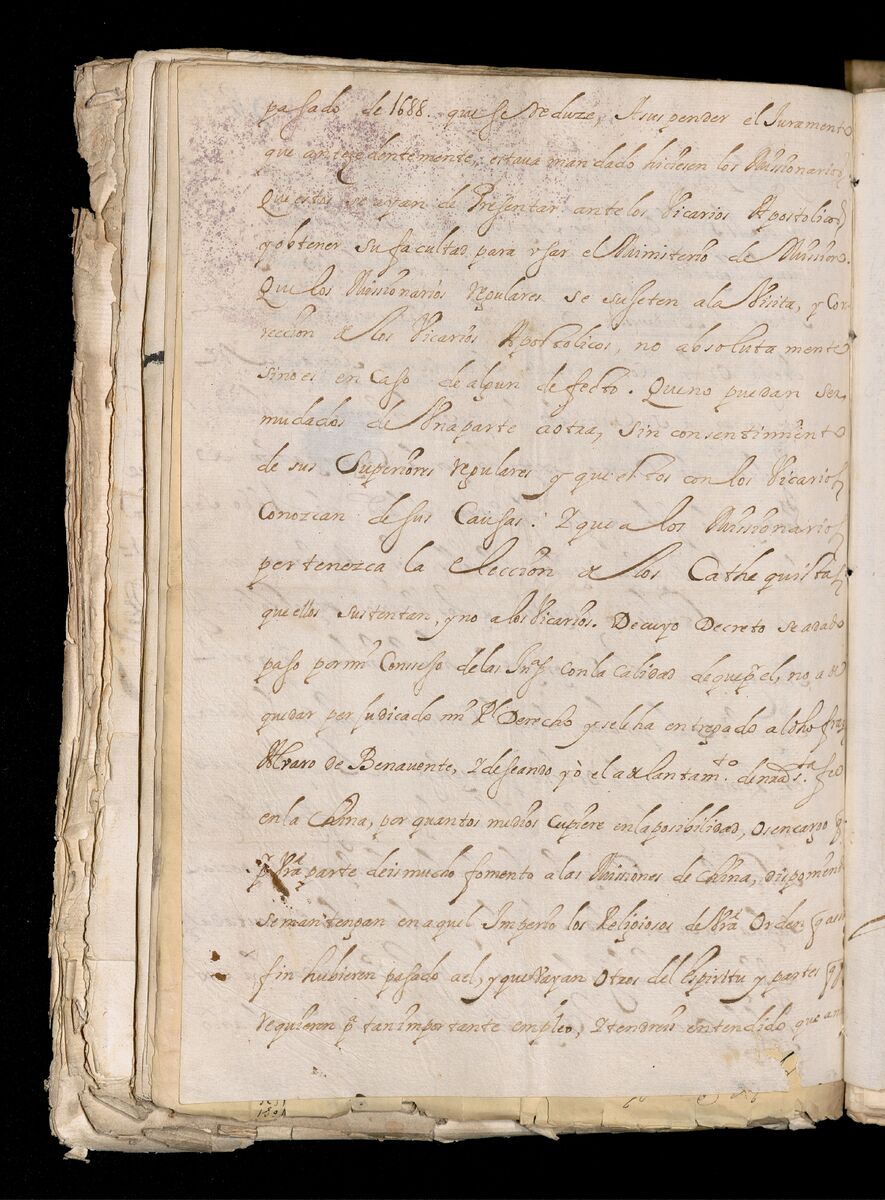 pasado de 1688. que se Reduze, A suspender el Juramento
que antezedentemente, estava mandado hiciesen los Missionarios,
Que estos se ayan de Presentar ante los Vicarios Apostolicos
y obtener su facultad para vsar el Ministerio de Mission.
Que los Missionarios regulares se sujeten a la Visita, y Cor-
reccion de los Vicarios Apostolicos, no absolutamente
sino es en Caso de algun defecto. Que no puedan ser
mudados de Vna parte a otra, sin consentimiento
de sus Superiores regulares y que estos con los Vicarios
Conozcan de sus Causas: Y que a los Missionarios
pertenezca la eleccion de los Cathequistas
que ellos sustentan, y no a los Vicarios. De cuyo Decreto se a dado
paso por mi Conssejo de las Ynas con la calidad de que pr el, no a de
quedar perjudicado mi Rl Derecho y se le ha entregado al dho fray
Alvaro de Benavente, Y deseando yo el adelantamto. de nra Sta fee
en la China, por quantos medios cupiere en la posibilidad, os encargo
pr Vra parte deis mucho fomento a las Missiones de China, disponiendo
se mantengan en aquel Imperio los Religiosos de Vra Orden q a este
fin hubieren pasado a el, y que vayan otros del Espiritu y partes q se
requieren pa tan importante empleo, Y tendreis entendido que